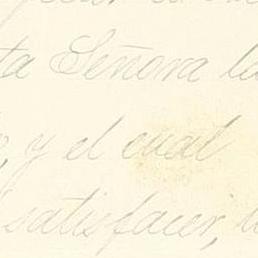 ta Señora la
y el cual
satisfacer,